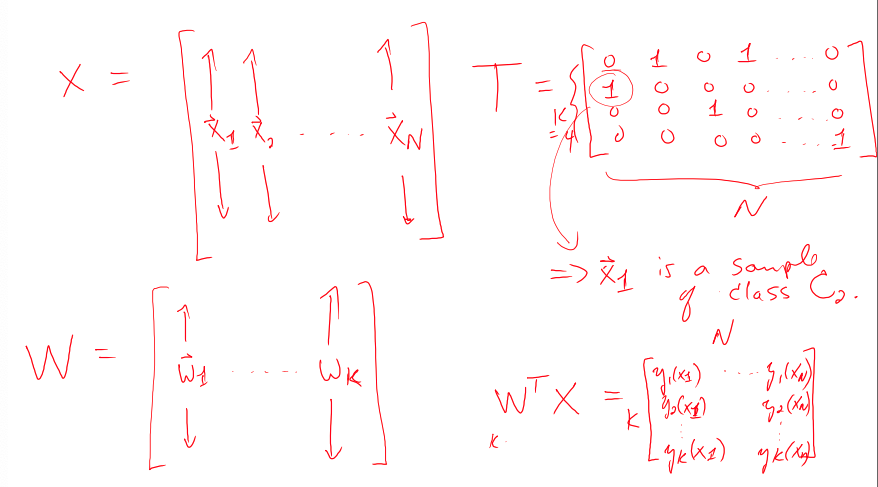 X = [ x⃗1 x⃗2 ..... x⃗N ]
T = K = 4 { [ 0 1 0 1 ..... 0
1 0 0 0 ..... 0
0 0 1 0 ..... 0
0 0 0 0 ..... 1 ]
N
=> x⃗1 is a sample
of class C2.
W = [ w⃗1 ..... wK ]
N
WᵀX = K [ y1(x1) ..... y1(xN)
y2(x1) y2(xN)
yK(x1) yK(xN) ]
K